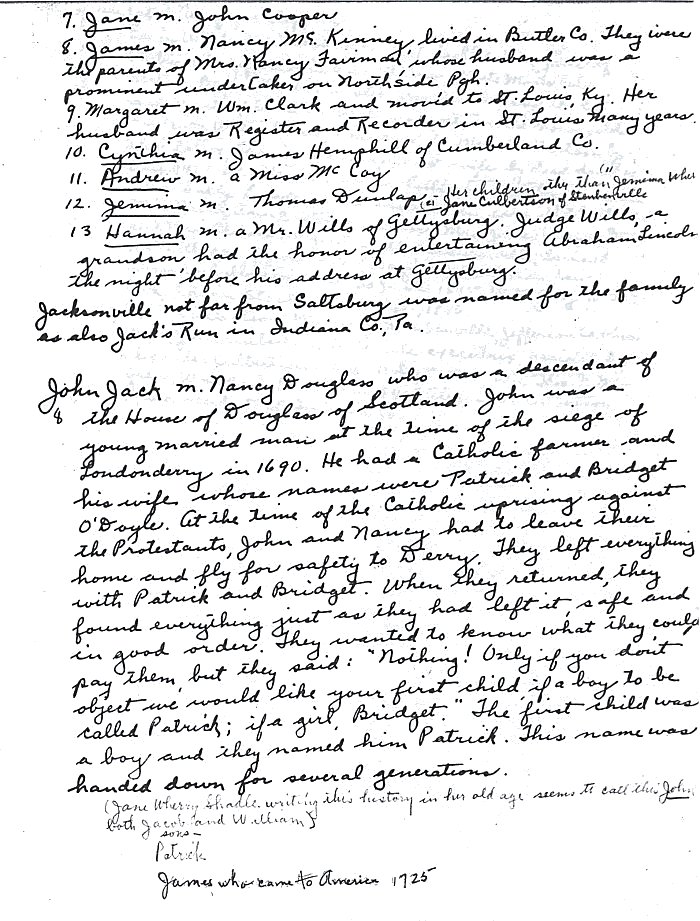 7. Jane m. John Cooper
8. James m. Nancy McKinney, lived in Butler Co. They were
the parents of Mrs. Nancy Fairman whose husband was a
prominent undertaker on Northside Pgh.
9. Margaret m. Wm. Clark and mov'd to St. Louis, Ky. Her
husband was Register and Recorder in St. Louis many years.
10. Cynthia m. James Hemphill of Cumberland Co.
11. Andrew m. a Miss McCoy
12. Jemima m. Thomas Dunlap (or Jane Culbertson of Steubenville
Her children othr than Jemima Wher
13 Hannah m. a Mr. Wills of Gettysburg. Judge Wills, a
grandson had the honor of entertaining Abraham Lincoln
the night before his address at Gettysburg.
Jacksonville not far from Saltsburg was named for the family
as also Jack's Run in Indiana Co., Pa.
John Jack m. Nancy Douglass who was a descendant of
8 the House of Douglass of Scotland. John was a
young married man at the time of the siege of
Londonderry in 1690. He had a Catholic farmer and
his wife whose names were Patrick and Bridget
O'Doyle. At the time of the Catholic uprising against
the Protestants, John and Nancy had to leave their
home and fly for safety to Derry. They left everything
with Patrick and Bridget. When they returned, they
found everything just as they had left it, safe and
in good order. They wanted to know what they could
pay them, but they said: "Nothing! Only if you don't
object we would like your first child if a boy to be
called Patrick; if a girl, Bridget." The first child was
a boy and they named him Patrick. This name was
handed down for several generations.
(Jane Wherry writing this history in her old age seems to call this John
both Jacob and William)
sons-
Patrick
James who came to America 1725